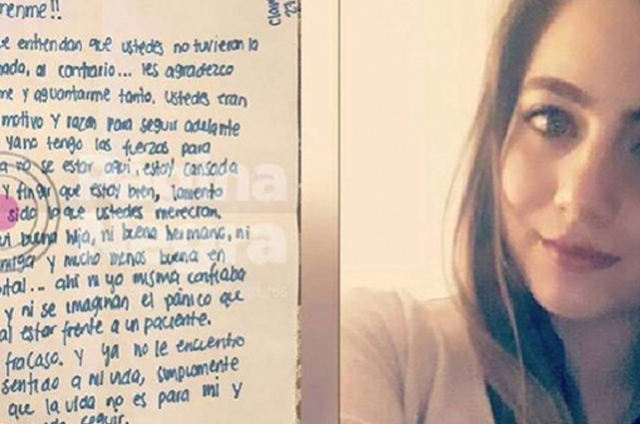 renme!!
e entiendan que ustedes no tuvieran la
ada, al contrario... les agradezco
me y aguantarme tanto. ustedes eran
motivo y razón para seguir adelante
ya no tengo las fuerzas para
a no se estar aqui, estoy cansada
y fingir que estoy bien, lamento
sido lo que ustedes merecian.
ui buena hija, ni buena hermana, ni
amiga y mucho menos buena en
pital... ahi ni yo misma confiaba
y ni se imaginan el pánico que
al estar frente a un paciente.
fracaso. Y ya no le encuentro
sentido a mi vida, simplemente
que la vida no es para mi y
seguir.